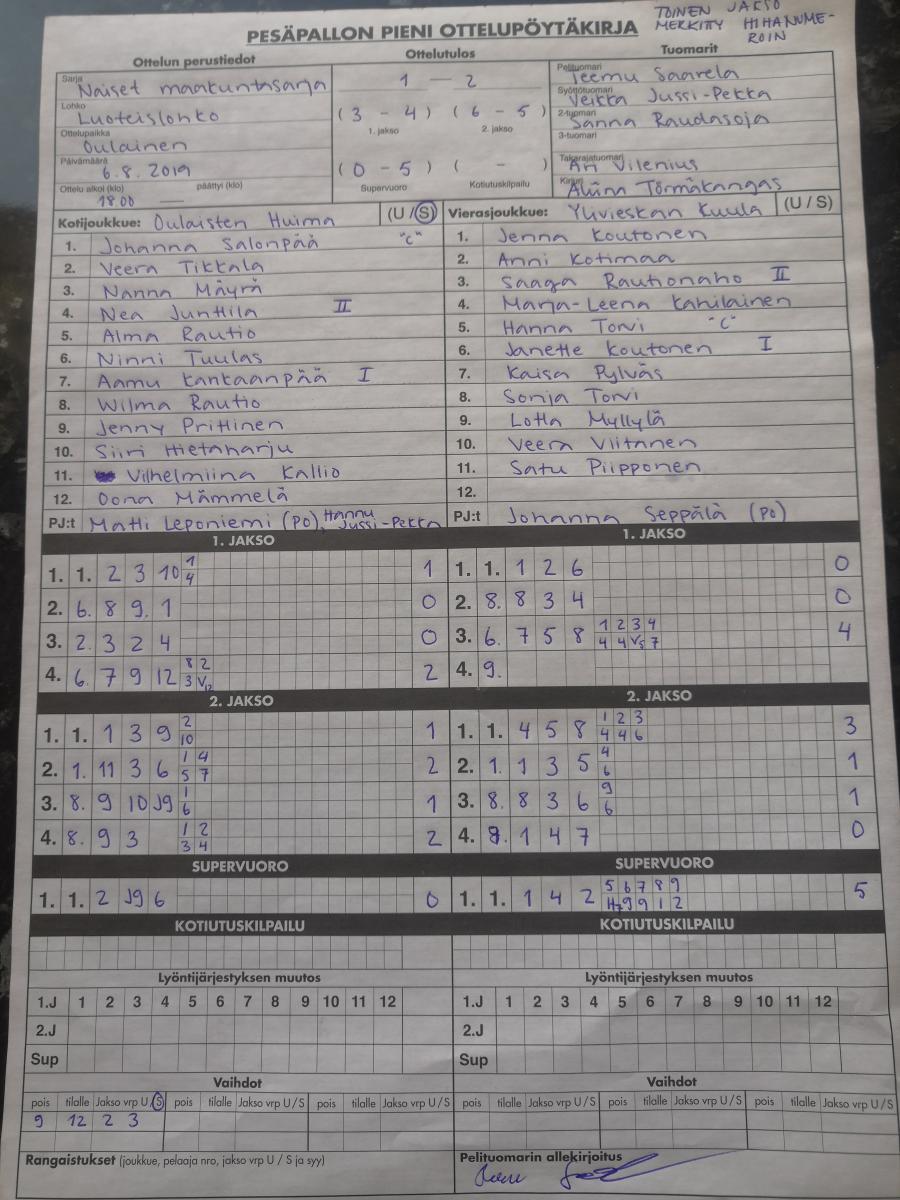 TOINEN JAKSO
MERKITY HIHANUME-
ROIN
PESÄPALLON PIENI OTTELUPÖYTÄKIRJA
Ottelun perustiedot Ottelutulos Tuomarit
Sarja Naiset maakuntasarja 1 — 2 Pelituomari Teemu Saarela
Lohko Luoteislohko (3 - 4) (6 - 5) Syöttötuomari Veikka Jussi-Pekka
1. jakso 2. jakso 2-tuomari Sanna Raudasoja
Ottelupaikka Oulainen 3-tuomari
Päivämäärä 6.8.2019 (0 - 5) ( - ) Takarajatuomari Ari Vilenius
Ottelu alkoi (klo) 18.00 päättyi (klo) — Supervuoro Kotiutuskilpailu Kirjuri Törmäkangas
Kotijoukkue: Oulaisten Huima (U / S) Vierasjoukkue: Ylivieskan Kuula (U / S)
1. Johanna Salonpää "C" 1. Jenna Koutonen
2. Veera Tikkala 2. Anni Kotimaa
3. Nanna Mäyrä 3. Saaga Rautionaho II
4. Nea Junttila II 4. Marja-Leena Kahilainen
5. Alma Rautio 5. Hanna Torvi "C"
6. Ninni Tuulas 6. Janette Koutonen I
7. Aamu Kankaanpää I 7. Kaisa Pylväs
8. Wilma Rautio 8. Sonja Torvi
9. Jenny Prittinen 9. Lotta Myllylä
10. Siiri Hietaharju 10. Veera Viitanen
11. Vilhelmiina Kallio 11. Satu Piipponen
12. Oona Mämmelä 12.
PJ:t Matti Leponiemi (PO), Hannu Jussi-Pekka PJ:t Johanna Seppälä (PO)
1. JAKSO 1. JAKSO
1. 1. 2 3 10 1/4 1 1. 1. 1 2 6 0
2. 6. 8 9. 1 0 2. 8. 8 3 4 0
3. 2. 3 2 4 0 3. 6. 7 5 8 1 2 3 4 / 4 4 V5 7 4
4. 6. 7 9 12 8 2 / 3 V12 2 4. 9.
2. JAKSO 2. JAKSO
1. 1. 1 3 9 2/10 1 1. 1. 4 5 8 1 2 3 / 4 4 6 3
2. 1. 11 3 6 1 4 / 5 7 2 2. 1. 1 3 5 4/6 1
3. 8. 9 10 J9 1/6 1 3. 8. 8 3 6 9/6 1
4. 8. 9 3 1 2 / 3 4 2 4. 9. 1 4 7 0
SUPERVUORO SUPERVUORO
1. 1. 2 J9 6 0 1. 1. 1 4 2 5 6 7 8 9 / H7 9 9 1 2 5
KOTIUTUSKILPAILU KOTIUTUSKILPAILU
Lyöntijärjestyksen muutos Lyöntijärjestyksen muutos
1.J 1 2 3 4 5 6 7 8 9 10 11 12 1.J 1 2 3 4 5 6 7 8 9 10 11 12
2.J 2.J
Sup Sup
Vaihdot Vaihdot
pois tilalle Jakso vrp U/S pois tilalle Jakso vrp U/S pois tilalle Jakso vrp U/S pois tilalle Jakso vrp U/S pois tilalle Jakso vrp U/S pois tilalle Jakso vrp U/S
9 12 2 3
Rangaistukset (joukkue, pelaaja nro, jakso vrp U / S ja syy) Pelituomarin allekirjoitus